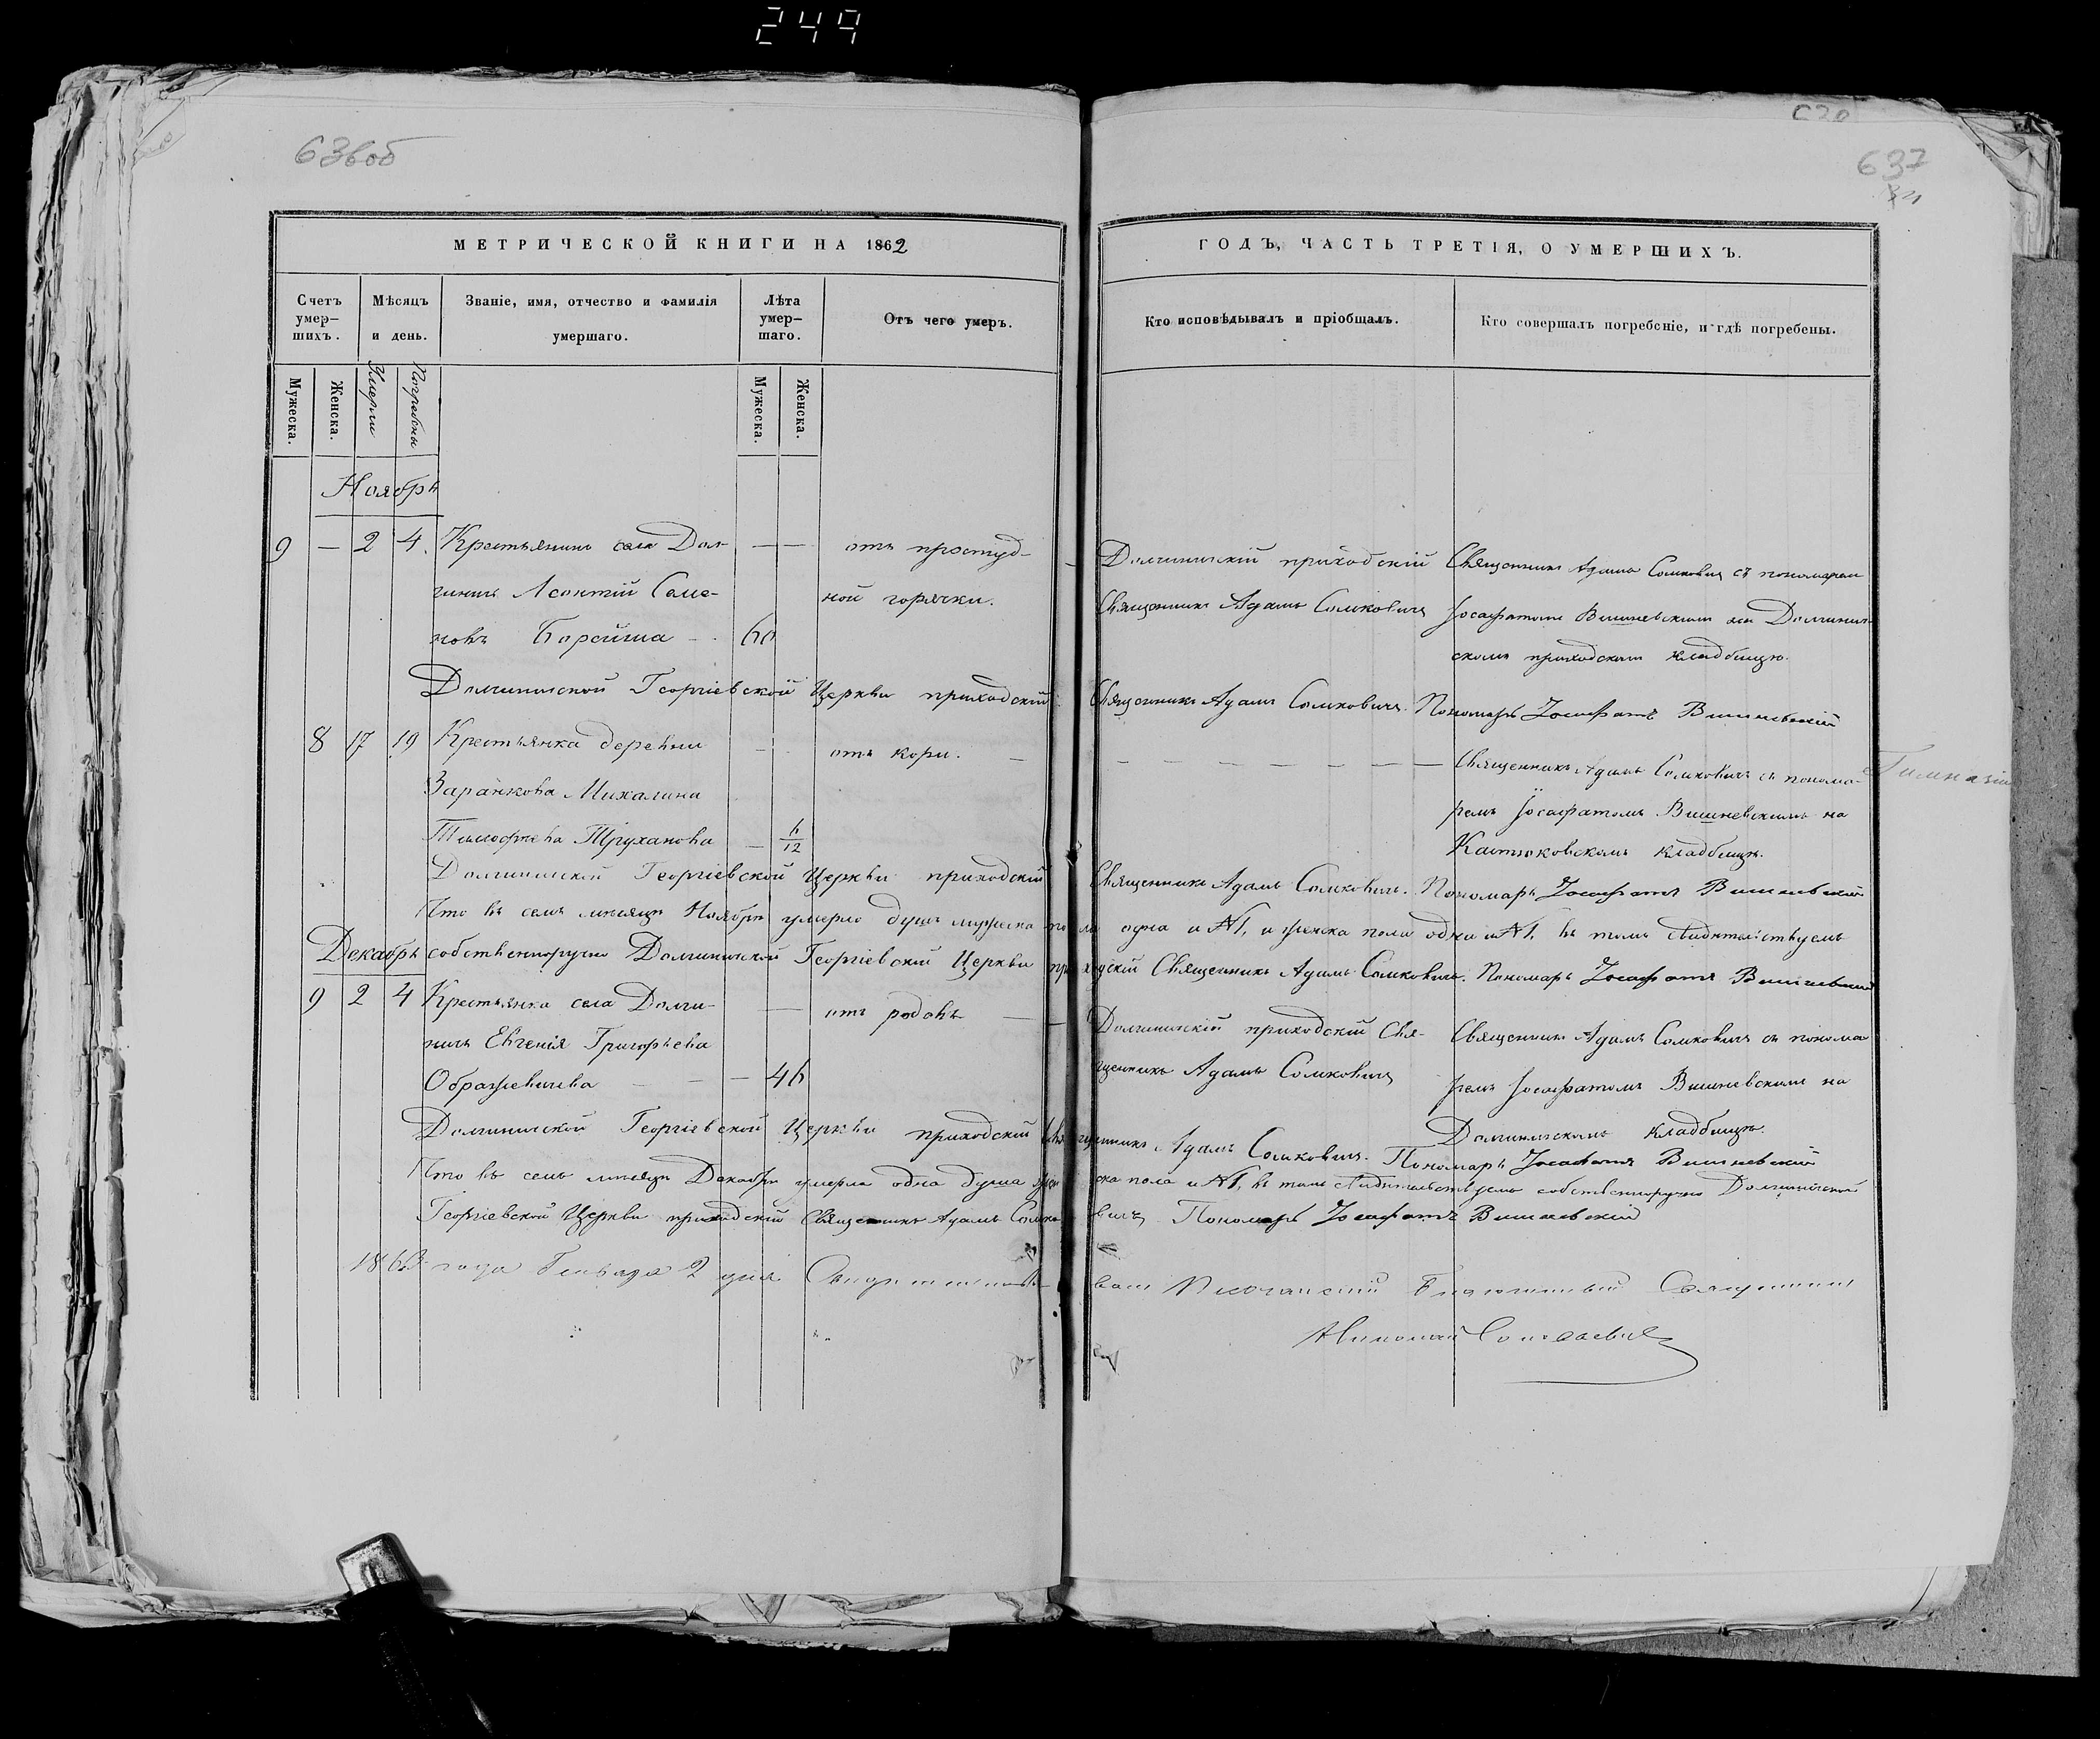 249
636об
637
МЕТРИЧЕСКОЙ КНИГИ НА 1862
ГОДЪ, ЧАСТЬ ТРЕТІЯ, О УМЕРШИХЪ.
Счетъ умер-шихъ.
Мѣсяцъ и день.
Званіе, имя, отчество и фамилія умершаго.
Лѣта умер-шаго.
Отъ чего умеръ.
Кто исповѣдывалъ и пріобщалъ.
Кто совершалъ погребеніе, и гдѣ погребены.
Мужеска.
Женска.
Умерли
Погребены
Мужеска.
Женска.
Ноябрь
9 — 2 4. Крестьянинъ села Дол- — — отъ простуд-
гинищъ Леонтій Семе- ной горячки.
новъ Борейша — 60
Долгиничскій приходскій
Священникъ Адамъ Сомковичъ
Священникъ Адамъ Сомковичъ съ пономаремъ
Іосафатомъ Вишневскимъ на Долгинич-
скомъ приходскомъ кладбищѣ.
Долгиничской Георгіевской Церкви приходскій Священникъ Адамъ Сомковичъ. Пономарь Іосафатъ Вишневскій
8 17 19 Крестьянка деревни — — отъ кори. —
Заранкова Михалина
Тимофеева Труханова — 6/12
Священникъ Адамъ Сомковичъ съ понома-
ремъ Іосафатомъ Вишневскимъ на
Костюковскомъ кладбищѣ.
Долгиничской Георгіевской Церкви приходскій Священникъ Адамъ Сомковичъ. Пономарь Іосафатъ Вишневскій
Что въ семъ мѣсяцѣ Ноябрѣ умерло душъ мужеска пола одна и №1, и женска пола одна и №1, въ томъ свидѣтельствуемъ
Декабрь
собственноручно Долгиничской Георгіевской Церкви приходскій Священникъ Адамъ Сомковичъ. Пономарь Іосафатъ Вишневскій
9 2 4 Крестьянка села Долги- — отъ родовъ —
ничъ Евгенія Григорьева
Образцевичева — — — 46
Долгиничскій приходскій Свя-
щенникъ Адамъ Сомковичъ
Священникъ Адамъ Сомковичъ съ понома
ремъ Іосафатомъ Вишневскимъ на
Долгиничскомъ кладбищѣ.
Долгиничской Георгіевской Церкви приходскій Священникъ Адамъ Сомковичъ. Пономарь Іосафатъ Вишневскій
Что въ семъ мѣсяцѣ Декабрѣ умерла одна душа женска пола и №1, въ томъ свидѣтельствуемъ собственноручно Долгиничской
Георгіевской Церкви приходскій Священникъ Адамъ Сомковичъ. Пономарь Іосафатъ Вишневскій
1863 года Генваря 2 дня Свидѣтельствовалъ Священникъ
Николай